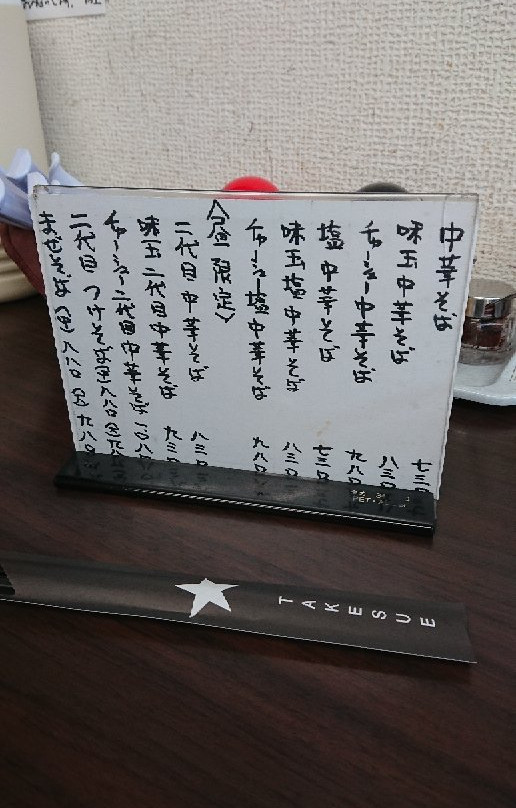 中華そば 七三〇
味玉中華そば 八三〇
チャーシュー中華そば 九八〇
塩中華そば 七三〇
味玉塩中華そば 八三〇
チャーシュー塩中華そば 九八〇
〈昼限定〉
二代目中華そば 八三〇
味玉二代目中華そば 九三〇
チャーシュー二代目中華そば 一〇八〇
二代目つけそば 八八〇 九八〇
まぜそば 八八〇 九八〇
TAKESUE